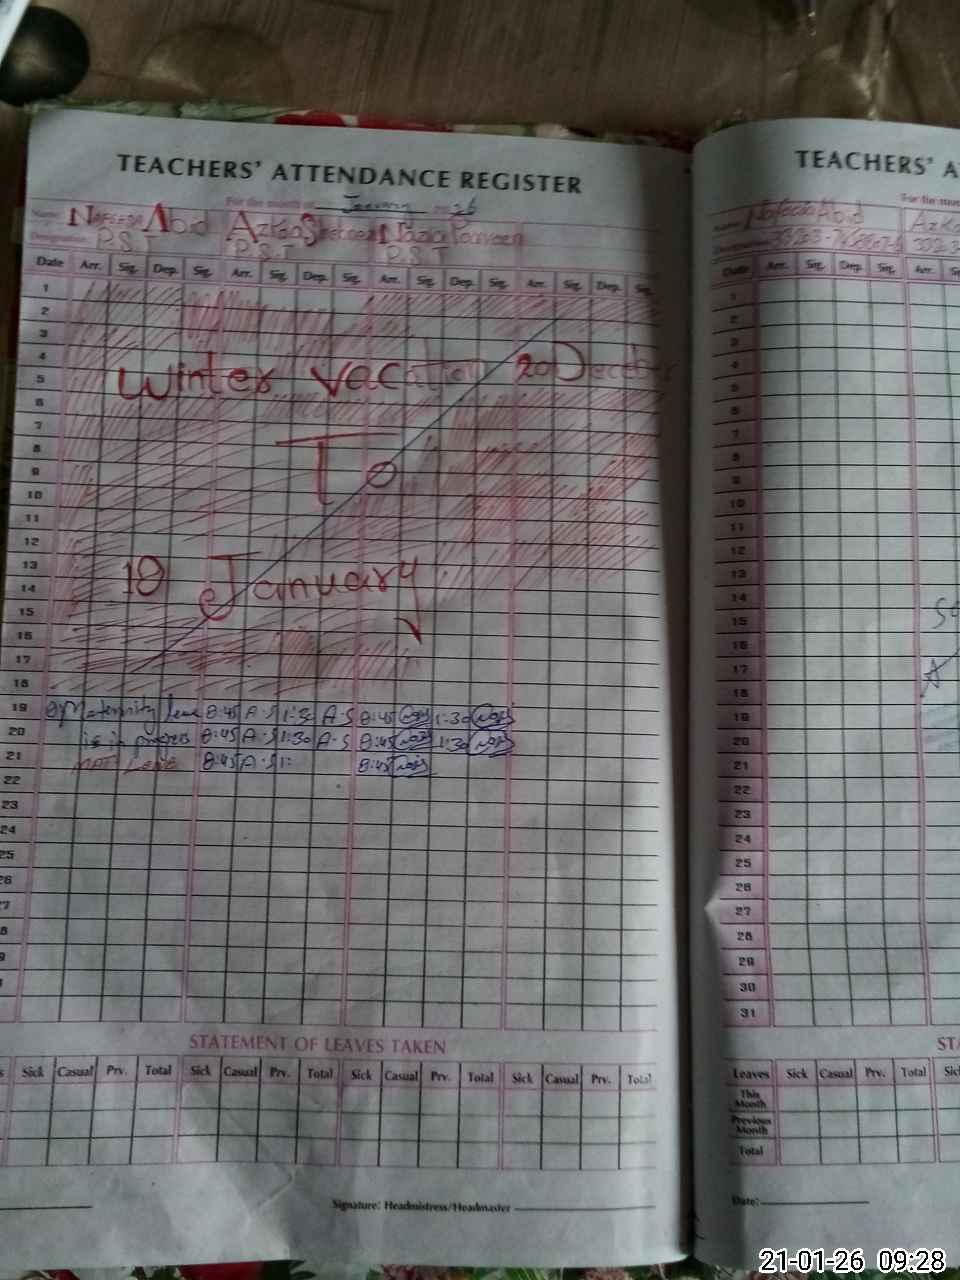 TEACHERS' ATTENDANCE REGISTER
For the month of January 2026
Name: NAFEEDA Abid Azka Nazia Parveen
Designation: P.S.T P.S.T P.S.T
Date Arr. Sig. Dep. Sig. Arr. Sig. Dep. Sig. Arr. Sig. Dep. Sig. Arr. Sig. Dep. Sig.
1
2
3
4
Winter Vacation 20 December
5
6
7
8
To
9
10
11
12
13
January
14
15
16
17
18
19 Maternity leave 8:45 A.S 1:30 A.S 8:45 1:30
20 is in progress 8:45 A.S 1:30 A.S 8:45 1:30
21 8:45 A.S 1: 8:45
22
23
24
25
26
STATEMENT OF LEAVES TAKEN
Sick Casual Prv. Total Sick Casual Prv. Total Sick Casual Prv. Total Sick Casual Prv. Total
Signature: Headmistress/Headmaster
TEACHERS' A
For the mon
Name: Abid
Date Arr. Sig. Dep. Sig. Arr.
1
2
3
4
5
6
7
8
9
10
11
12
13
14
15
16
17
18
19
20
21
22
23
24
25
26
27
28
29
30
31
STA
Leaves Sick Casual Prv. Total
This Month
Previous Month
Total
Date:
21-01-26 09:28